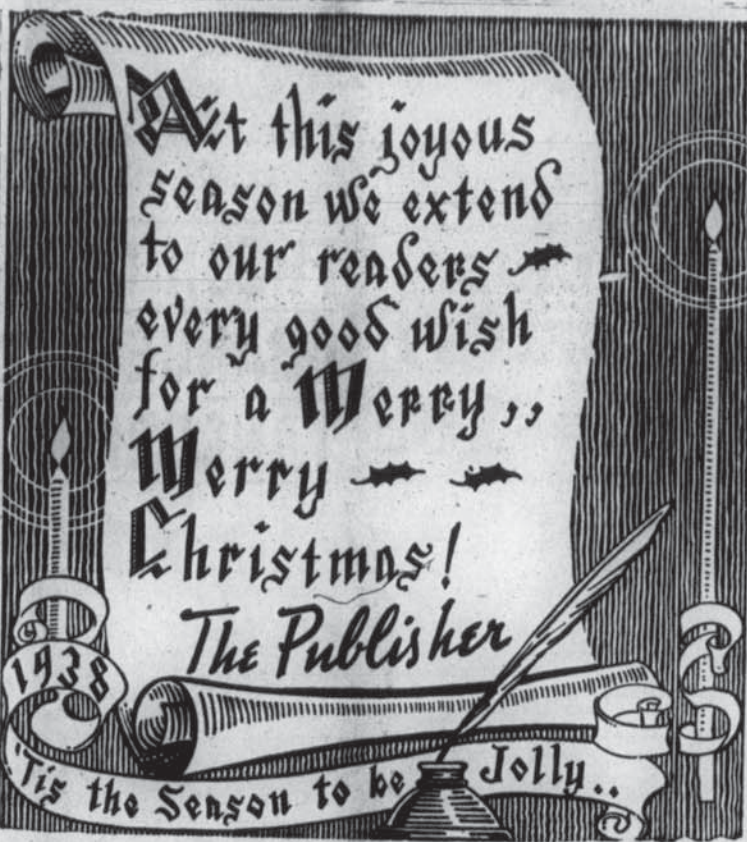 At this joyous
season we extend
to our readers
every good wish
for a Merry,,
Merry
Christmas!
The Publisher
1938
'Tis the Season to be Jolly..